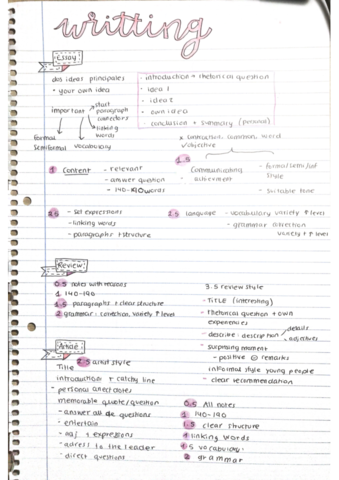 writting
Essay:
dos ideas principales
+ your own idea
important
start paragraph connectors
linking words
formal
semiformal
vocabulary
- introduction + rhetorical question
- idea 1
- idea 2
- own idea
- conclusion + summary (personal)
1 Content - relevant
- answer question
- 140-190 words
1.5
Communicating
achievement
- formal/semi/inf
style
- suitable tone
- set expressions
- linking words
- paragraphs + structure
2.5 Language - vocabulary variety + level
- grammar correction
variety + level
Review:
0.5 notes with reasons
1 140-190
1.5 paragraphs + clear structure
2 grammar: correction, variety + level
3.5 review style
- TITLE (interesting)
- rhetorical question + own
experiences
- describe: description
details
adjectives
- surprising moment
- positive remarks
informal style young people
- clear recommendation
Article:
2.5 artist style
Title
introduction + catchy line
- personal anecdotes
memorable quote/question
- answer all questions
- entertain
- adj + expressions
- adress to the reader
- direct questions
0.5 All notes
1 140-190
1.5 clear structure
1 linking words
1.5 vocabulary
2 grammar